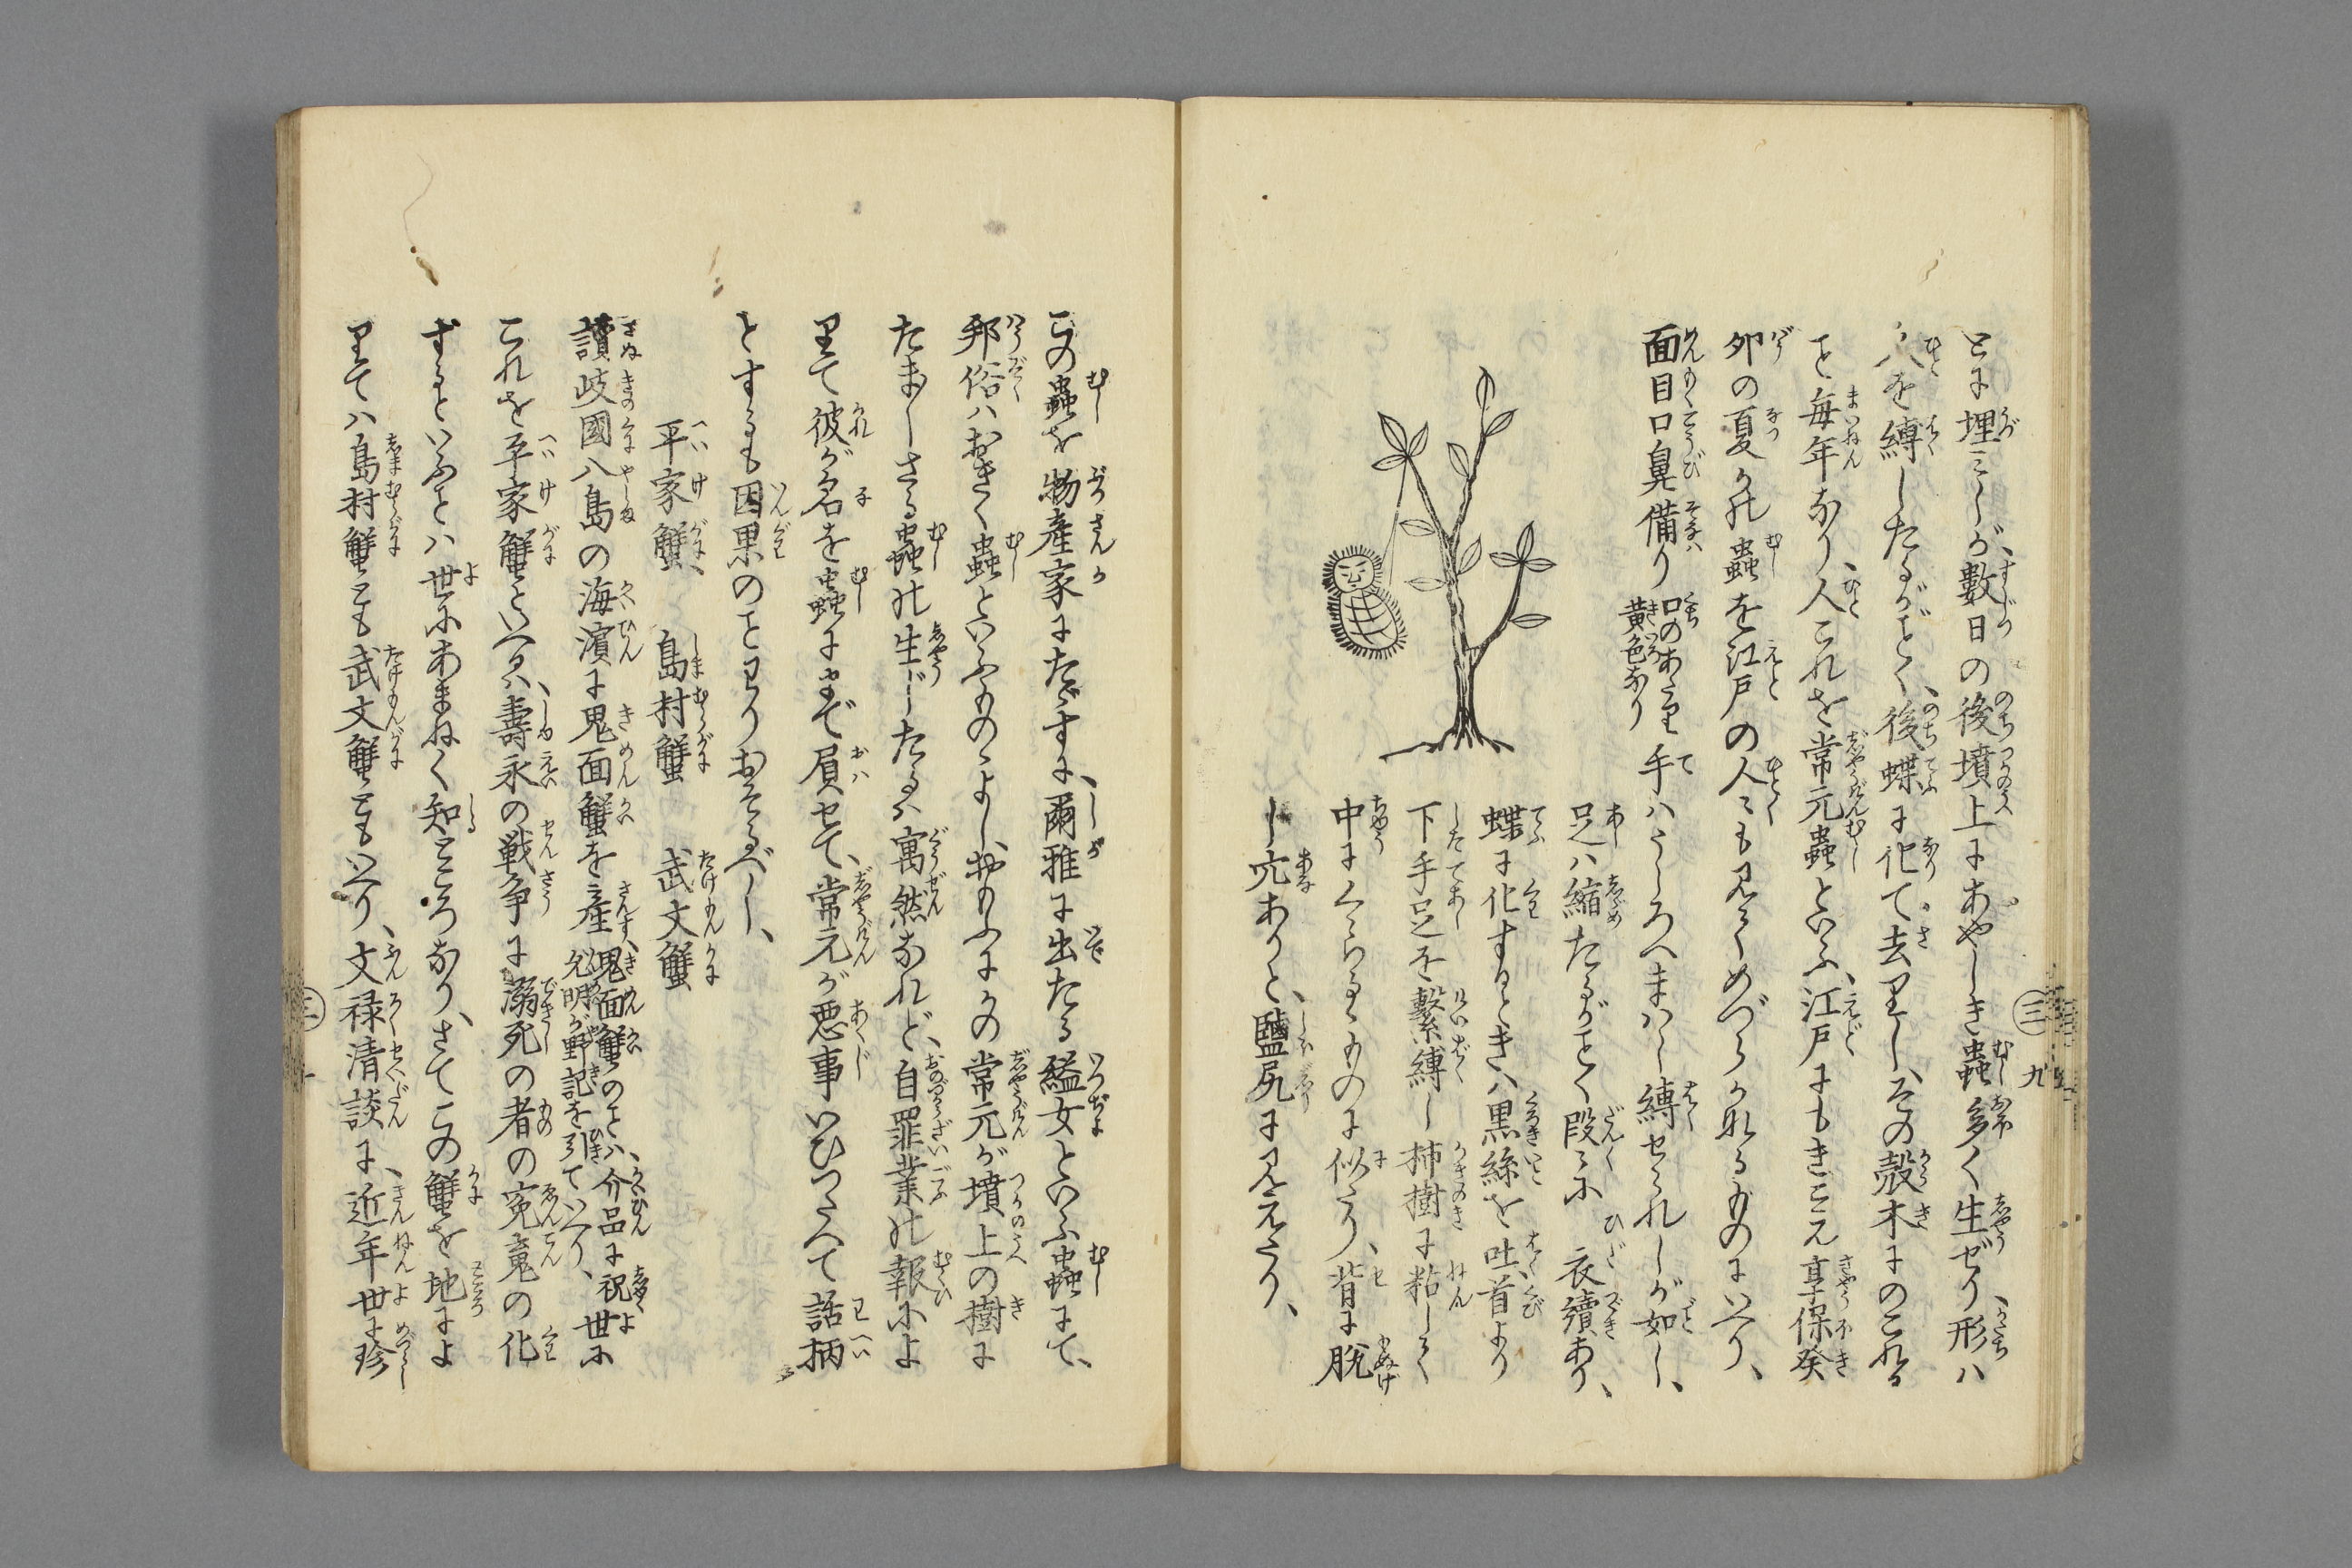 とに埋ミしが、數日の後墳上にあやしき蟲多く生ぜり、形ハ
人を縛したるがごとく、後蝶に化て去りし、その殻木にのこれる
こと毎年なり、人これを常元蟲といふ、江戸にもきこえ享保癸
卯の夏かの蟲を江戸の人〻も見てめづらかなるものにいへり、
面目口鼻備り
口のあたり
黄色なり
手ハうしろへまハし縛せられしが如し、
足ハ縮たるがごとく段〻に衣續あり、
蝶に化するときハ黒絲を吐、首より
下手足を繋縛し柿樹に粘して
中にくゝらるゝものに似たり、背に脱
し穴ありと、鹽尻に見えたり、
三
九
この蟲を物産家にたゞすに、爾雅に出たる縊女といふ蟲にて、
邦俗ハおきく蟲といふものゝよし、おもふにかの常元が墳上の樹に
たま〳〵さる蟲の生じたるハ寓然なれど、自罪業の報によ
りて彼が名を蟲にまで屓せて、常元が悪事いひつたへて話柄
とするも因果のことわりおそるべし、
平家蟹、島村蟹 武文蟹
讃岐國八島の海濱に鬼面蟹を産
す、鬼面蟹のことハ、介品に祝
允明が野記を引ていへり、
世に
これを平家蟹といへるハ、壽永の戦争に溺死の者の寃鬼の化
するといふことハ世にあまねく知ところなり、さてこの蟹を地によ
りてハ島村蟹とも武文蟹ともいへり、文禄清談に、近年世に珍
三